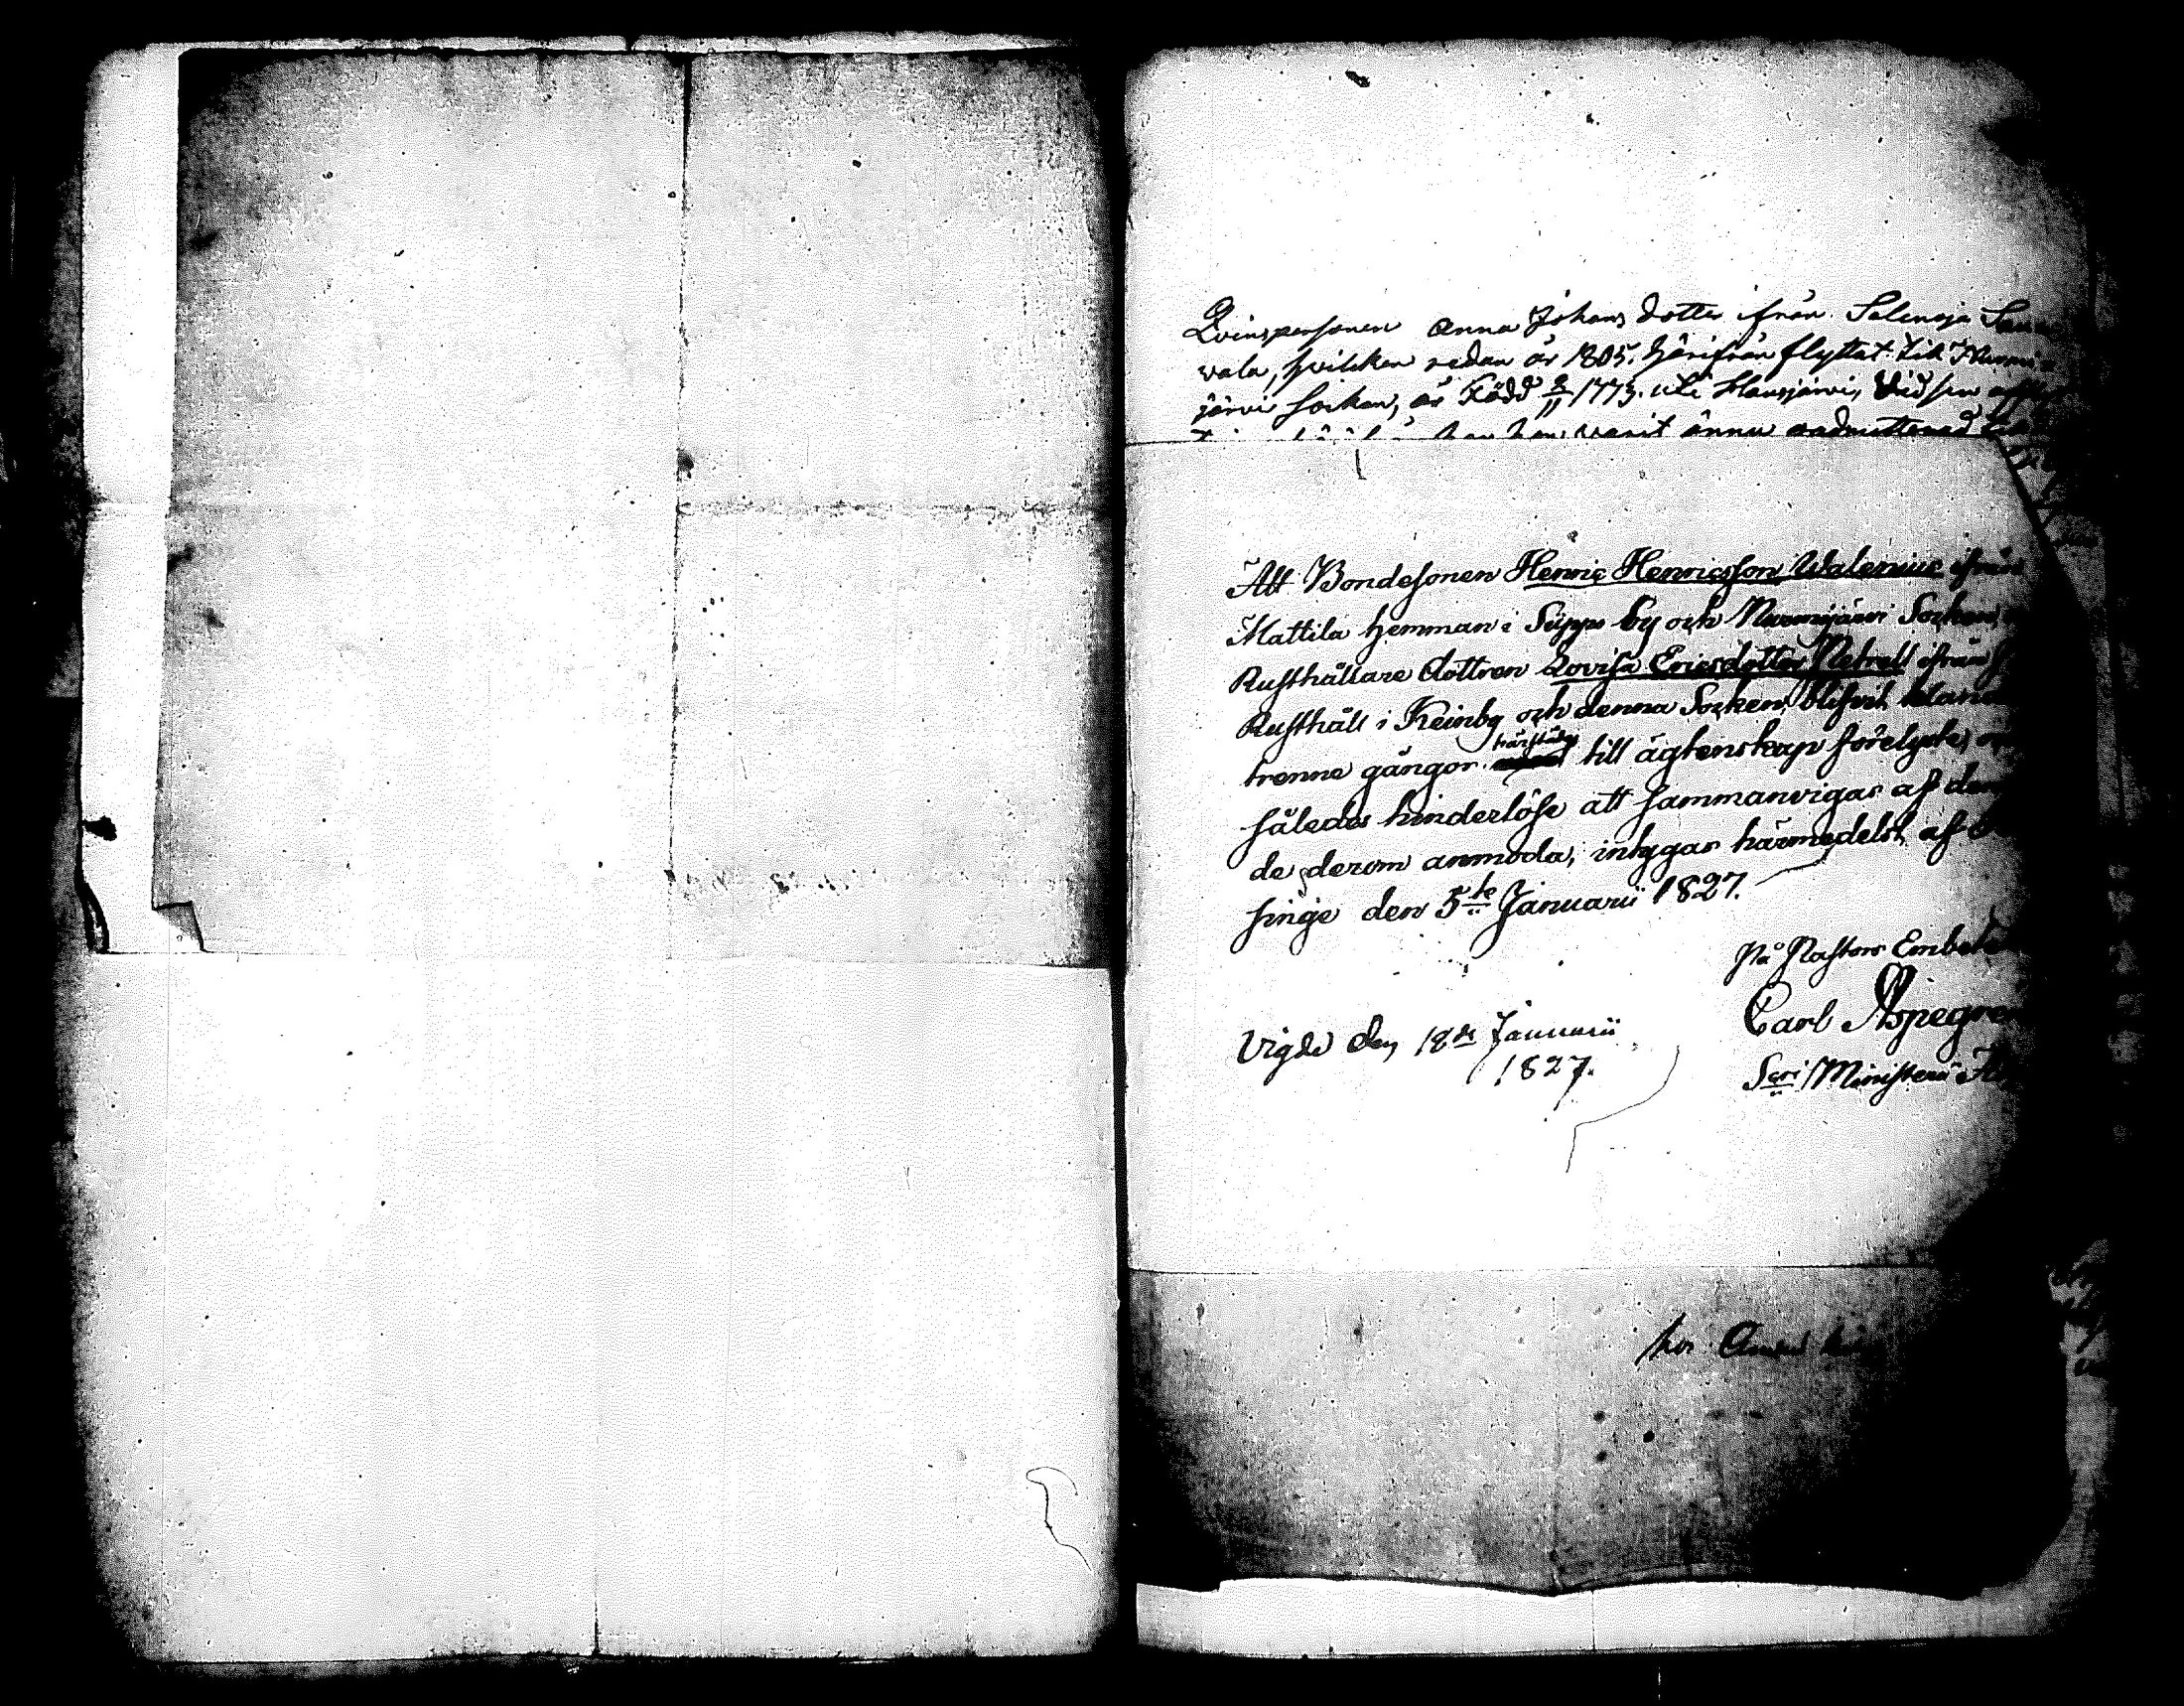 Qvinspersonen Anna Johans dotter ifrån Salinoja
vala, hvilken redan år 1805. härifrån flyttat till
järvi Socken, är Född 2/11 1773. uti Hausjärvi, vid sin
varit ännu
Att Bondesonen Henric Henricsson Walenius ifrån
Mattila hemman i Siippo by och Nurmijärvi Socken,
Rusthållare dottren Lovisa Ericsdotter Petrell ifrån
Rusthåll i Keinby och denna Socken, blifvit
trenne gångor härstädes till ägtenskap förelyste,
således hinderlöse att sammanvigas af den
de derom anmoda, intygas härmedelst, af
singe den 5te Januarii 1827.
På Pastors Embetets
Carl Aspegren
Scri Ministerii
Vigde den 18de Januarii
1827.
hos